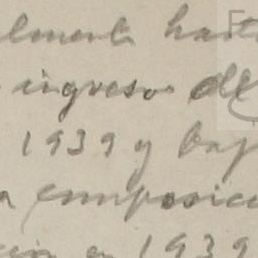 lmente hast
ingreso de
1939 y baj
a composici
ción en 1939